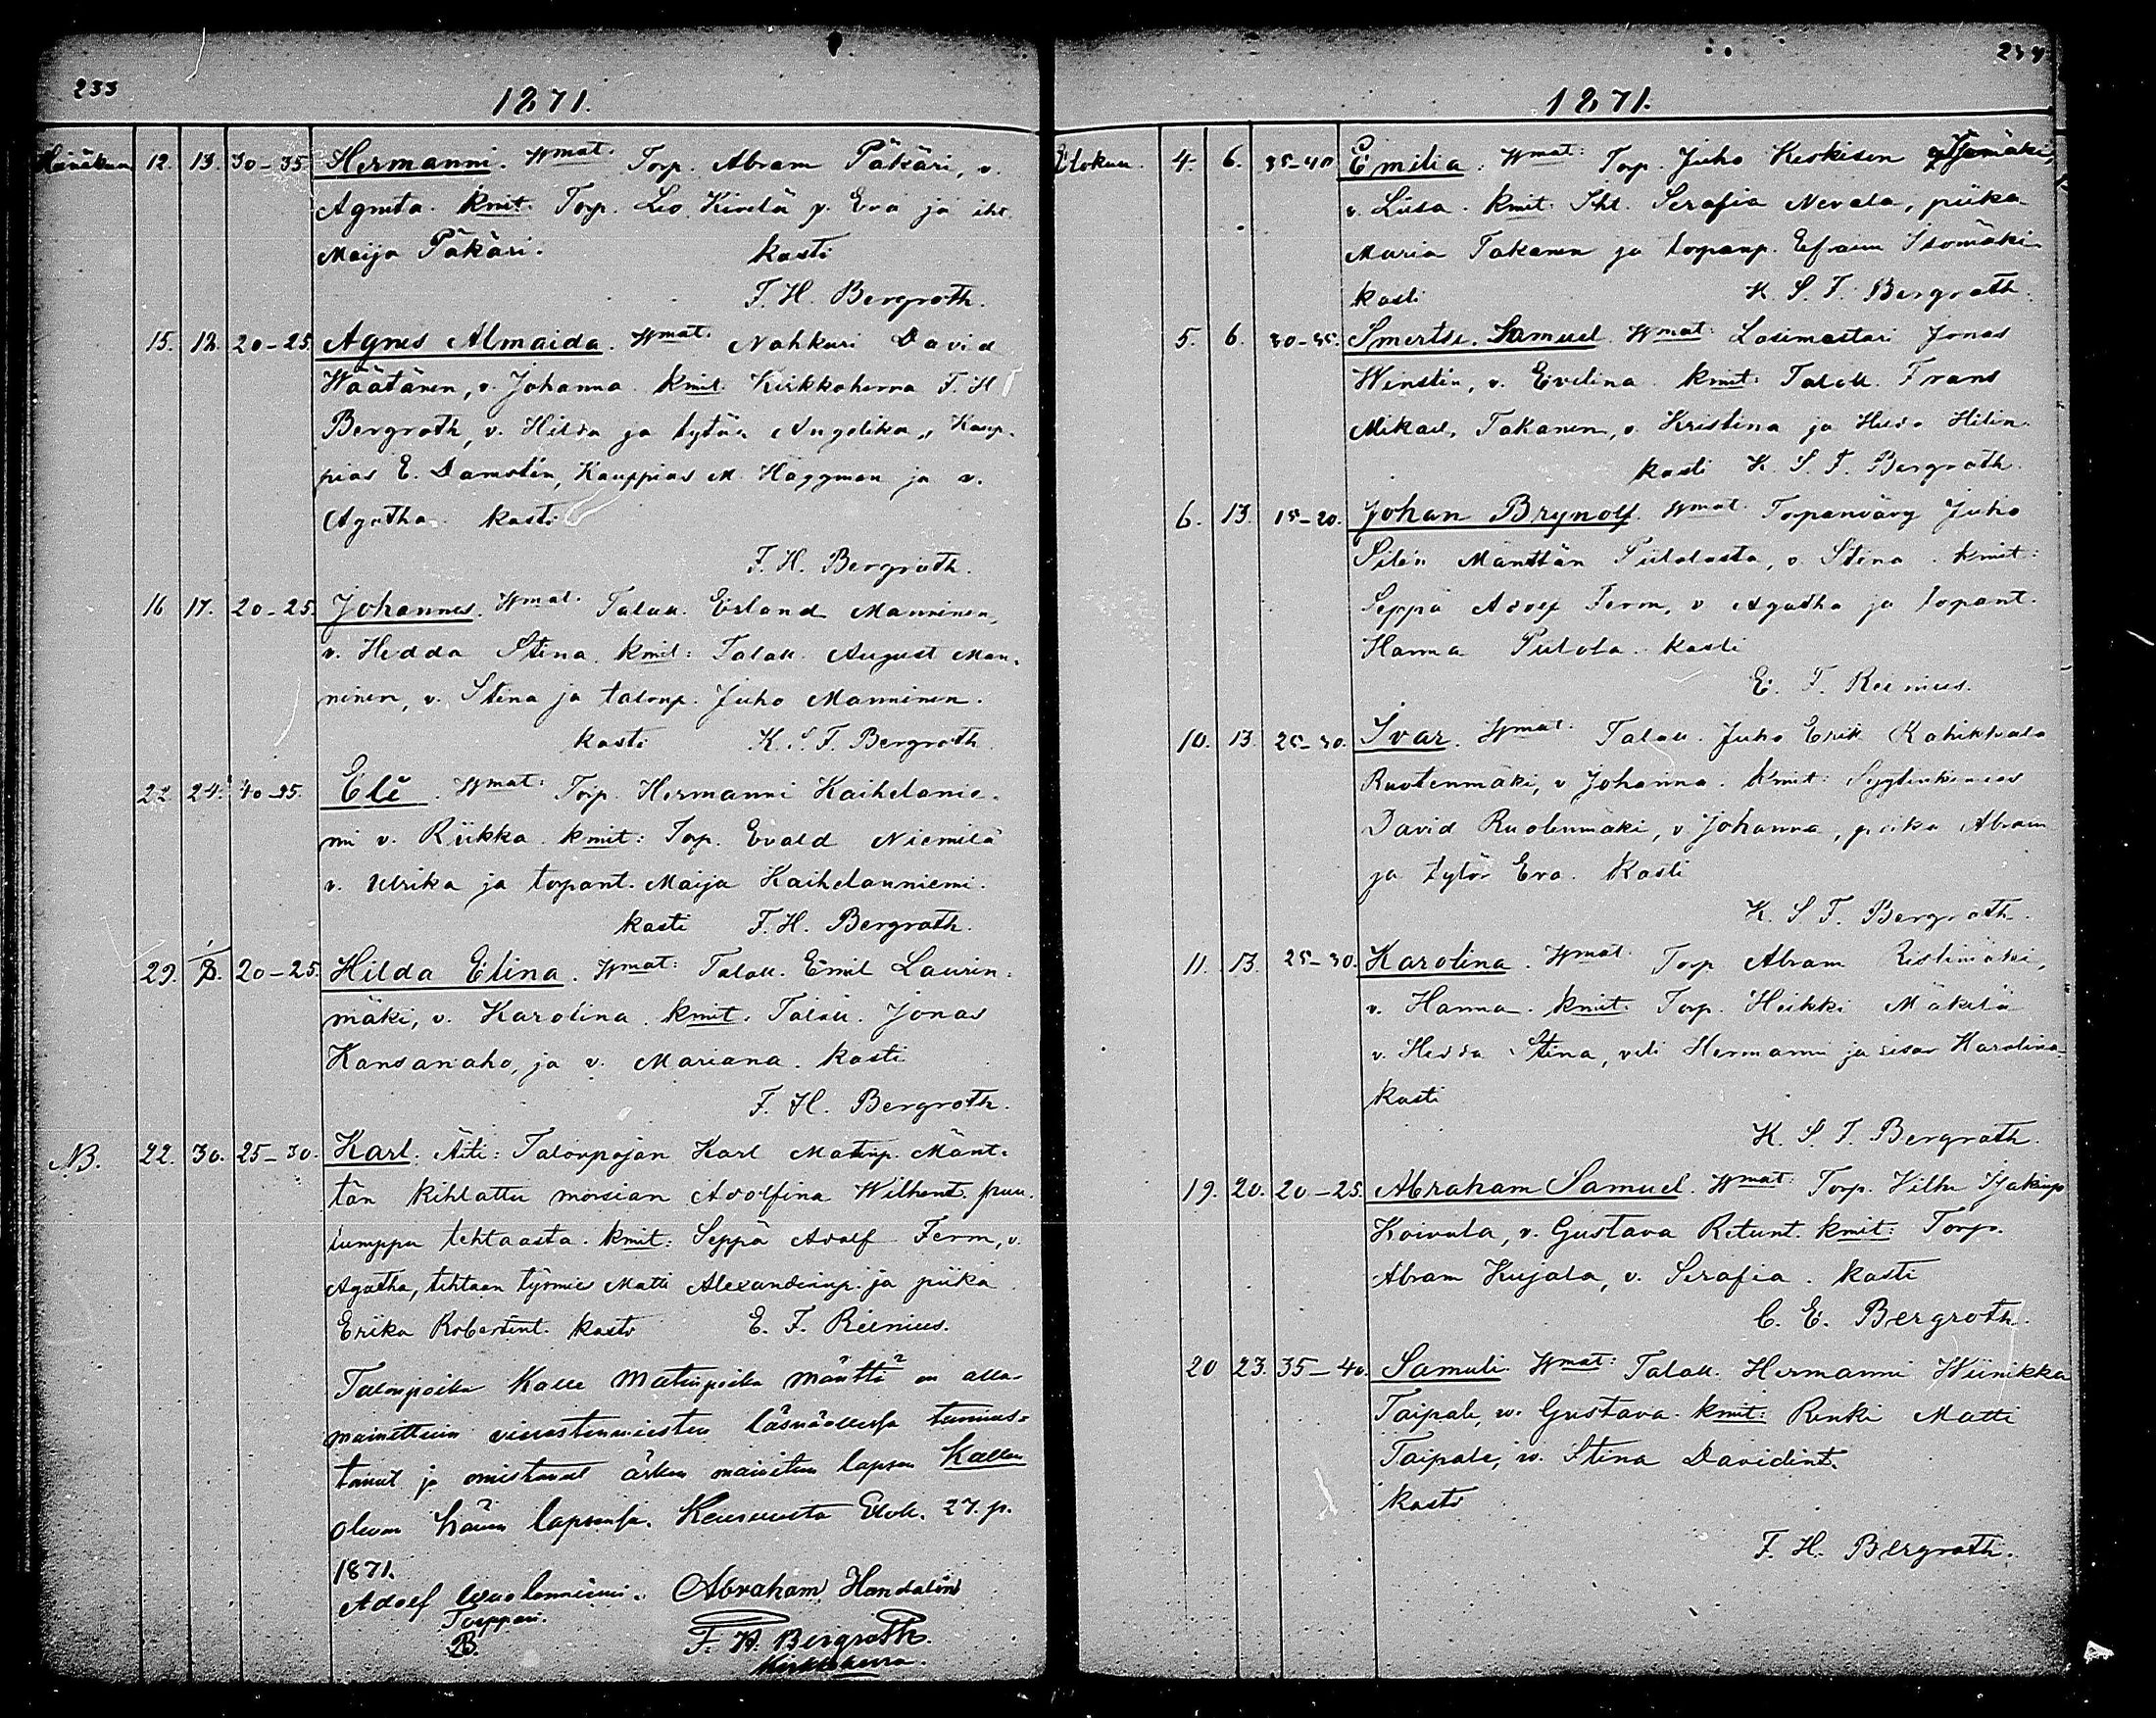 233
1871.
Heinäkuu 12. 13. 30-35 Hermanni. Wmat. Torp. Abram Päkäri, v.
Agneta. kmit. Torp. Leo Kivelä v. Eva ja iht.
Maija Päkäri. kasti
F. H. Bergroth.
15. 18. 20-25. Agnes Almaida. Wmat. Nahkuri David
Wäätänen, v. Johanna. kmit. Kirkkoherra F. H
Bergroth, v. Hilda ja tytär Angelika, Kaup-
pias E. Damstén, Kauppias M. Häggman ja v.
Agatha. kasti
F. H. Bergroth.
16 17. 20-25. Johannes. Wmat. Talall. Erland Manninen,
v. Hedda Stina. kmit: Talall. August Man-
ninen, v. Stina ja talonp. Juho Manninen.
kasti K. S. F. Bergroth
22 24. 40-45. Eli. Wmat: Torp. Hermanni Kaihelanie-
mi v. Riikka. kmit: Torp. Evald Niemilä
v. Ulrika ja torpant. Maija Kaihelanniemi.
kasti F. H. Bergroth.
29. 20-25. Hilda Elina. Wmat: Talall. Emil Laurin-
mäki, v. Karolina. kmit. Talall. Jonas
Kansanaho, ja v. Mariana. kasti
F. H. Bergroth.
NB. 22. 30. 25-30. Karl. Äiti: Talonpojan Karl Matinp. Mänt-
tän kihlattu morsian Adolfina Wilhent. puu
tehtaasta. kmit: Seppä Adolf Ferm, v.
Agatha, tehtaan työmies Matti Alexanderinp. ja piika
Erika Robertint. kasti E. F. Reinius.
Talonpoika Kalle Matinpoika Mänttä on alla-
mainittuin vierastenmiesten läsnäollessa tunnus-
tanut ja omistanut äsken mainitun lapsen Kallen
olevan hänen lapsensa. Keuruusta Elok. 27. p.
1871.
Adolf Abraham Handolin
Torppari.
F. H. Bergroth.
Kirkkoherra.
234
1871.
Elokuu. 4. 6. 35-40 Emilia. Wmat: Torp. Juho Keskisen
v. Liisa. kmit: Iht. Serafia Nevala, piika
Maria Takanen ja torpanp. Efraim Isomäki
kasti K. S. F. Bergroth.
5. 6. 30-35. Samuel. Wmat: Lasimestari Jonas
Winstén, v. Evelina. kmit: Talall. Frans
Mikael Takanen, v. Kristina ja
kasti K. S. F. Bergroth.
6. 13. 15-20. Johan Brynolf. Wmat. Torpanväry Juho
Silén Mänttän Pütolasta, v. Stina. kmit:
Seppä Adolf Ferm, v Agatha ja torpant.
Hanna kasti
E. F. Reinius.
10. 13. 25-30. Ivar. Wmat. Talall. Juho Erik
Ruotenmäki, v Johanna. kmit: Syytinkimies
David Ruotenmäki, v Johanna, poika Abram
ja tytär Eva. kasti
K. S. F. Bergroth.
11. 13. 25-30. Karolina. Wmat. Torp Abram Ristimäki,
v. Hanna. kmit: Torp. Heikki Mäkelä
v. Hedda Stina, veli Hermanni ja sisar Karolina
kasti
K. S. F. Bergroth.
19. 20. 20-25. Abraham Samuel. Wmat: Torp. Vilhe
Koivula, v. Gustava Retunt. kmit: Torp.
Abram Kujala, v. Serafia. kasti
C. E. Bergroth.
20 23. 35-40. Samuli. Wmat: Talall. Hermanni Wiinikka
Taipale, w. Gustava. kmit: Renki Matti
Taipale, w. Stina Davidint.
kasti
F. H. Bergroth.